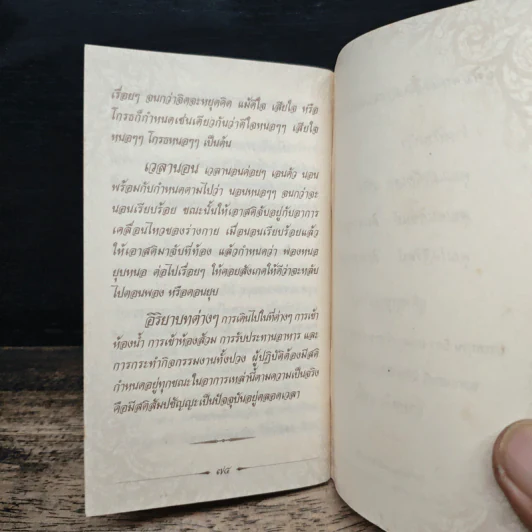 เรื่อยๆ จนกว่าจิตจะหยุดคิด แม้ดีใจ เสียใจ หรือ
โกรธก็กำหนดเช่นเดียวกันว่าดีใจหนอๆๆ เสียใจ
หนอๆๆ โกรธหนอๆๆ เป็นต้น
เวลานอน เวลานอนค่อยๆ เอนตัว นอน
พร้อมกับกำหนดตามไปว่า นอนหนอๆๆ จนกว่าจะ
นอนเรียบร้อย ขณะนั้นให้เอาสติจับอยู่กับอาการ
เคลื่อนไหวของร่างกาย เมื่อนอนเรียบร้อยแล้ว
ให้เอาสติมาจับที่ท้อง แล้วกำหนดว่า พองหนอ
ยุบหนอ ต่อไปเรื่อยๆ ให้คอยสังเกตให้ดีว่าจะหลับ
ไปตอนพอง หรือตอนยุบ
อิริยาบทต่างๆ การเดินไปในที่ต่างๆ การเข้า
ห้องน้ำ การเข้าห้องส้วม การรับประทานอาหาร และ
การกระทำกิจกรรมงานทั้งปวง ผู้ปฏิบัติต้องมีสติ
กำหนดอยู่ทุกขณะในอาการเหล่านี้ตามความเป็นจริง
คือมีสติสัมปชัญญะเป็นปัจจุบันอยู่ตลอดเวลา
๗๔